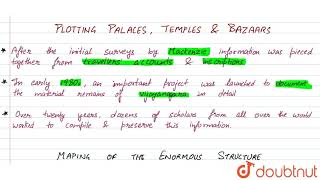 PLOTTING PALACES, TEMPLES & BAZAARS
* After the initial surveys by Mackenzie information was pieced
together from travellers accounts & inscriptions
* In early 1980s, an important project was launched to document
the material remains of Vijayanagara in detail
* Over twenty years, dozens of scholars from all over the world
worked to compile & preserve this information.
MAPING OF THE ENORMOUS STRUCTURE
doubtnut